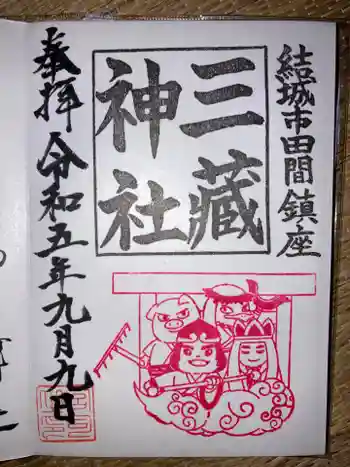 結城市田間鎮座
三蔵
神社
奉拝
令和五年九月九日